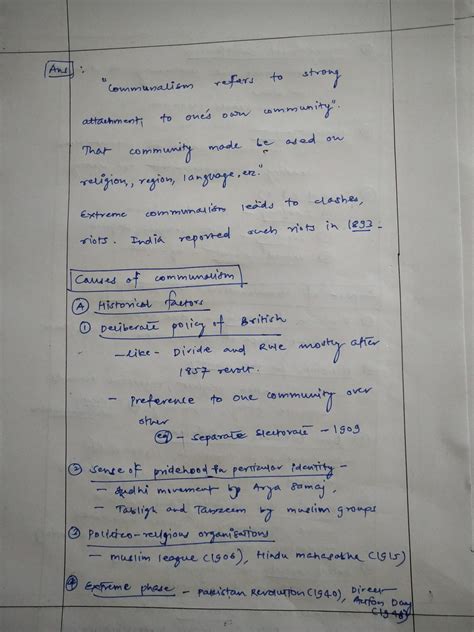 Ans :
"Communalism refers to strong
attachment, to one's own community".
That community made be ased on
religion, region, language, etc."
Extreme communalism leads to clashes,
riots. India reported such riots in 1893.
Causes of communalism
(A) Historical factors
① Deliberate policy of British
- like - Divide and Rule mostly after
1857 revolt.
- Preference to one community over
other
(eg) - Separate Electorate - 1909
② Sense of pridehood in perticular identity -
- Sudhi movement by Arya Samaj,
- Tabligh and Tanzeem by muslim groups
③ Politico-religious organisations
- muslim league (1906), Hindu mahasabha (1915)
④ Extreme phase - Pakistan Revolution (1940), Direct
Action Day
(1946)